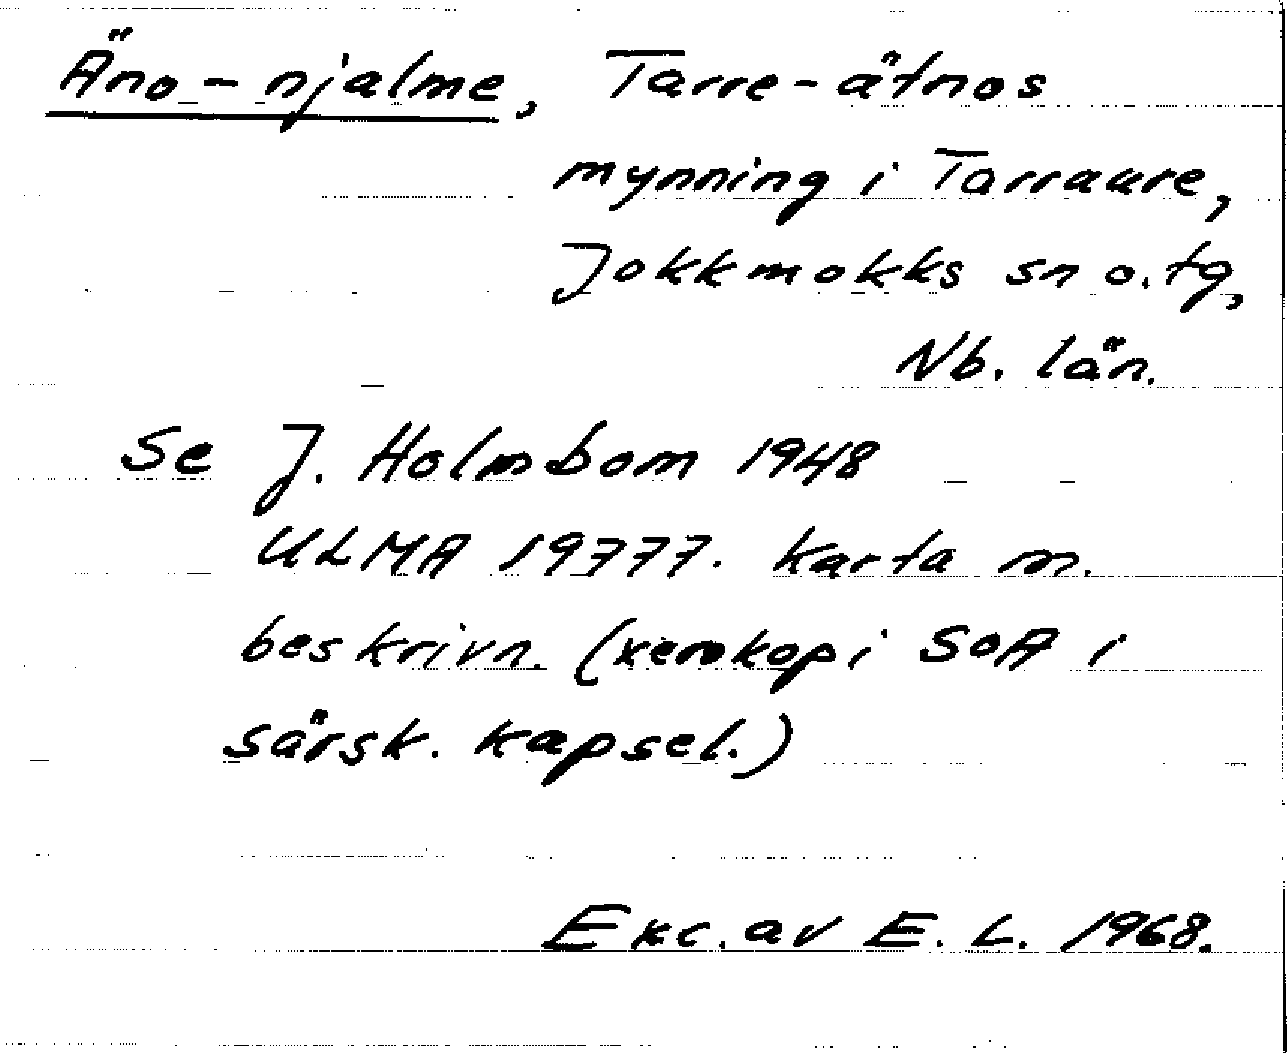 Äno-njalme, Tarre-ätnos
mynning i Tarraure,
Jokkmokks sn o. tg,
Nb. län.
Se J. Holmbom 1948
ULMA 19777. Karta m.
beskrivn. (xerokopi SOA i
särsk. kapsel.)
Exc. av E. L. 1968.